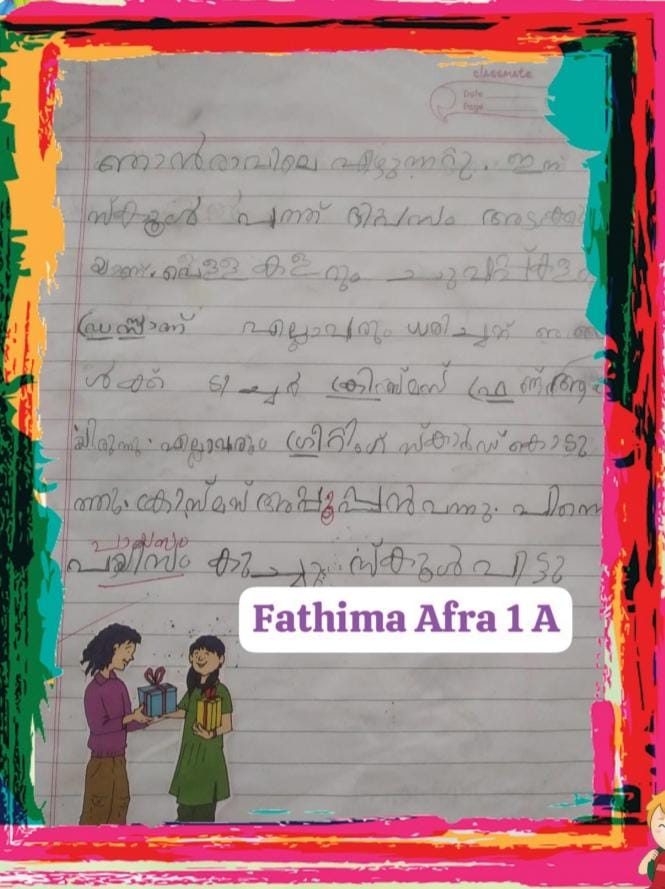 classmate
Date
Page
ഞാൻരാവിലെ എഴുന്നേറ്റു. ഇന്ന്
സ്കൂൾ പത്ത് ദിവസം അടക്കു
യാണ്. വെള്ള കളറും ചുവപ്പ് കള
ഡ്രസ്സാണ് എല്ലാവരും ധരിച്ചത്
ൾക്ക് ടീച്ചർ ക്രിസ്മസ്
യിരുന്നു. എല്ലാവരും ഗ്രീറ്റിംഗ് സ്കാർഡ് കൊടു
ത്തു. ക്രിസ്മസ് അപ്പൂപ്പൻ വന്നു. പിന്നെ
പായസം
പയിസം കുച്ചു സ്കൂൾ വിട്ടു
Fathima Afra 1 A